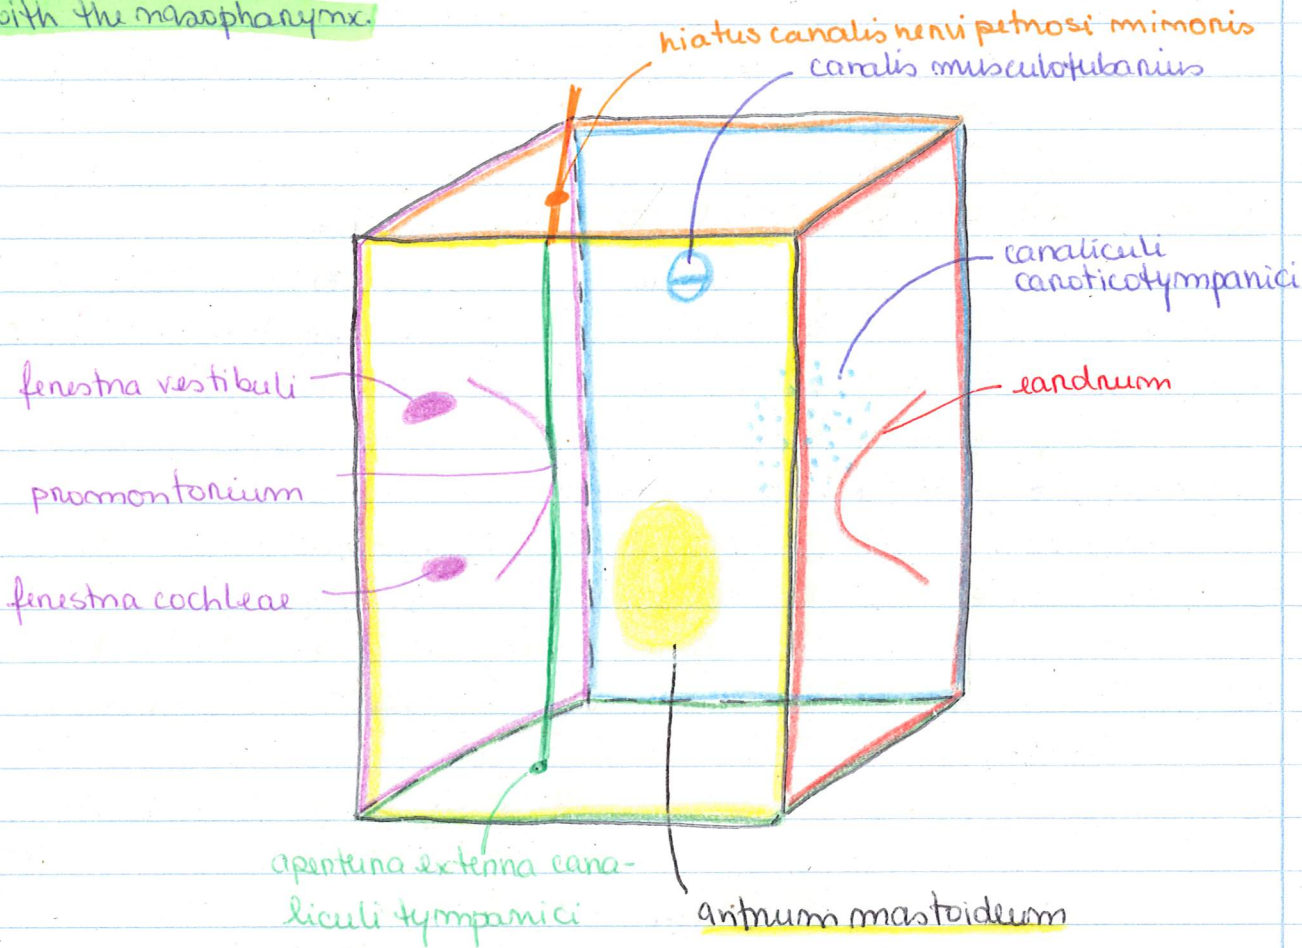 with the nasopharynx.
hiatus canalis nervi petrosi minoris
canalis musculotubarius
canaliculi
caroticotympanici
fenestra vestibuli
eardrum
promontorium
fenestra cochleae
apertura externa cana-
liculi tympanici
antrum mastoideum